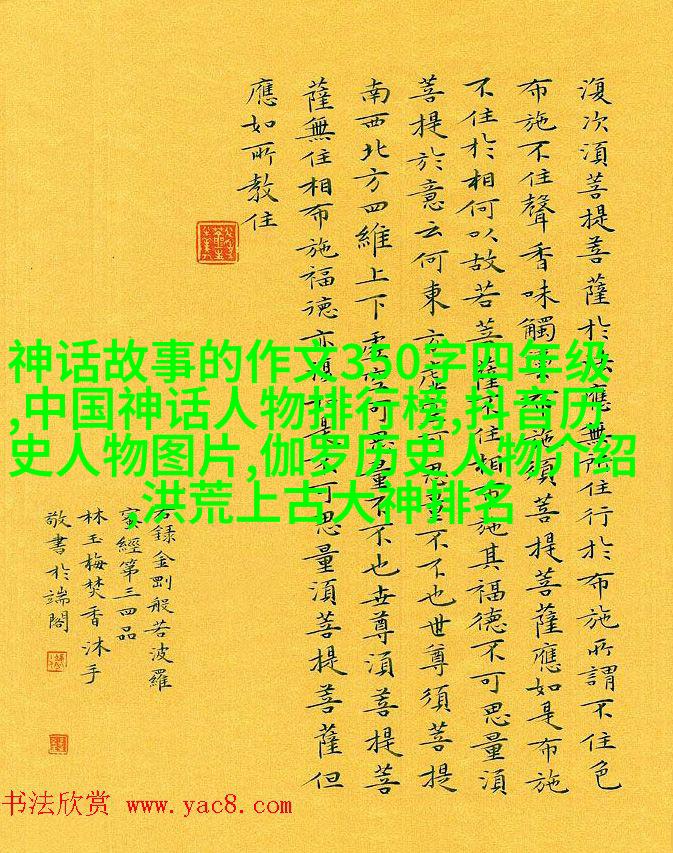 復次湏菩提菩薩於法應無所住行於布施所謂不住色
布施不住聲香味觸法布施須菩提菩薩應如是布施
不住於相何以故若菩薩不住相布施其福德不可思量湏
菩提於意云何東方虛空可思量不不也世尊須菩提
南西北方四維上下虛空可思量不不也世尊湏菩提菩
薩無住相布施福德亦復如是不可思量湏菩提菩薩但
應如所教住
右錄金剛般若波羅
蜜經第三四品
林玉梅焚香沐手
敬書於端閣
神话故事的作文350字四年级
,中国神话人物排行榜,抖音历
史人物图片,伽罗历史人物介绍
,洪荒上古大神排名
书法欣赏 www.yac8.com